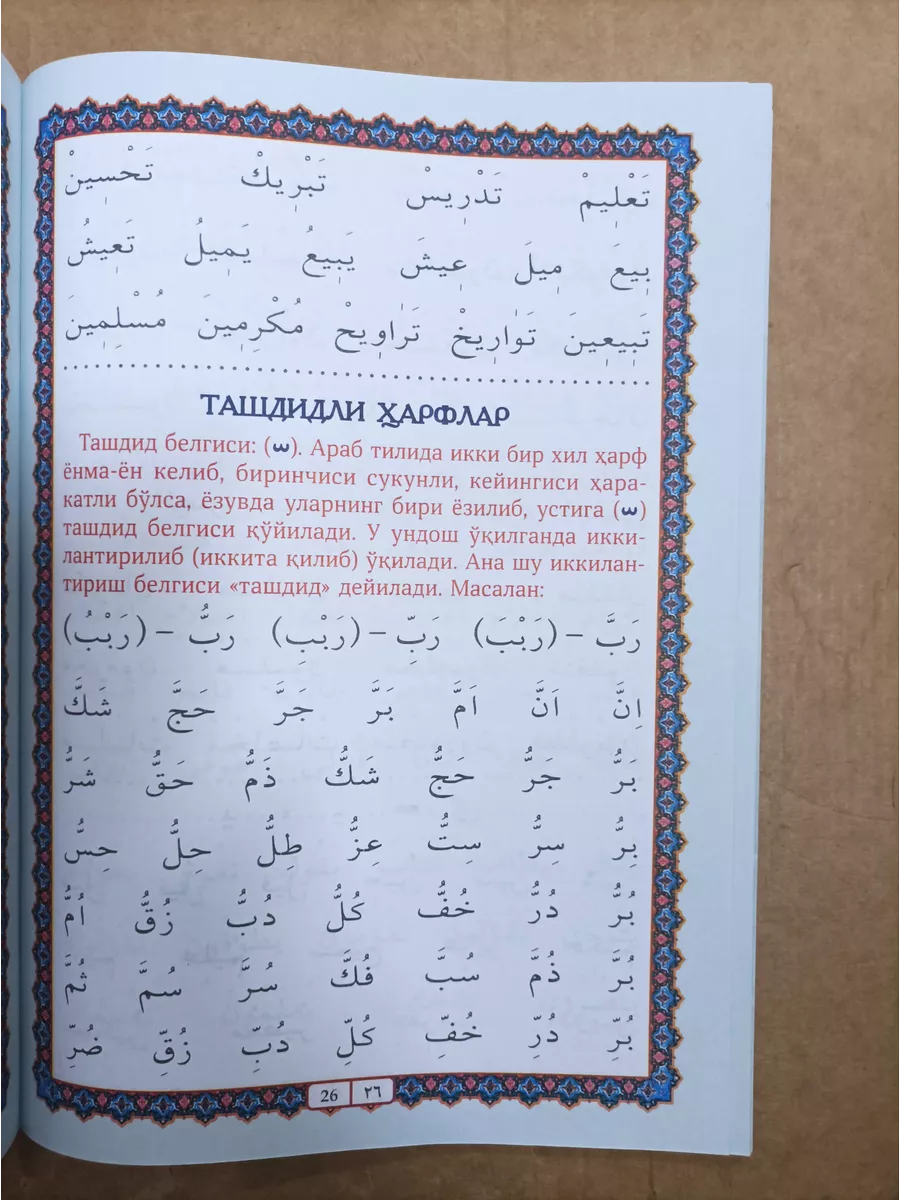 تَعْلِيمْ تَدْرِيسْ تَبْرِيكْ تَحْسِينْ
بِيعَ مِيلَ عِيشَ يَبِيعُ يَمِيلُ تَعِيشُ
تَبِيعِينَ تَوَارِيخْ تَرَاوِيحْ مُكْرِمِينَ مُسْلِمِينَ
ТАШДИДЛИ ҲАРФЛАР
Ташдид белгиси: (ّ). Араб тилида икки бир хил ҳарф
ёнма-ён келиб, биринчиси сукунли, кейингиси ҳара-
катли бўлса, ёзувда уларнинг бири ёзилиб, устига (ّ)
ташдид белгиси қўйилади. У ундош ўқилганда икки-
лантирилиб (иккита қилиб) ўқилади. Ана шу иккилан-
тириш белгиси «ташдид» дейилади. Масалан:
رَبَّ – (رَبْبَ) رَبِّ – (رَبْبِ) رَبُّ – (رَبْبُ)
اِنَّ اَنَّ اَمَّ بَرَّ جَرَّ حَجَّ شَكَّ
بَرُّ جَرُّ حَجُّ شَكُّ ذَمُّ حَقُّ شَرُّ
بِرُّ سِرُّ سِتُّ عِزُّ طِلُّ حِلُّ حِسُّ
بُرُّ دُرُّ خُفُّ كُلُّ دُبُّ زُقُّ اُمُّ
بُرَّ ذُمَّ سُبَّ فُكَّ سُرَّ سُمَّ ثُمَّ
بُرِّ دُرِّ خُفِّ كُلِّ دُبِّ زُقِّ ضُرِّ
26 ٢٦